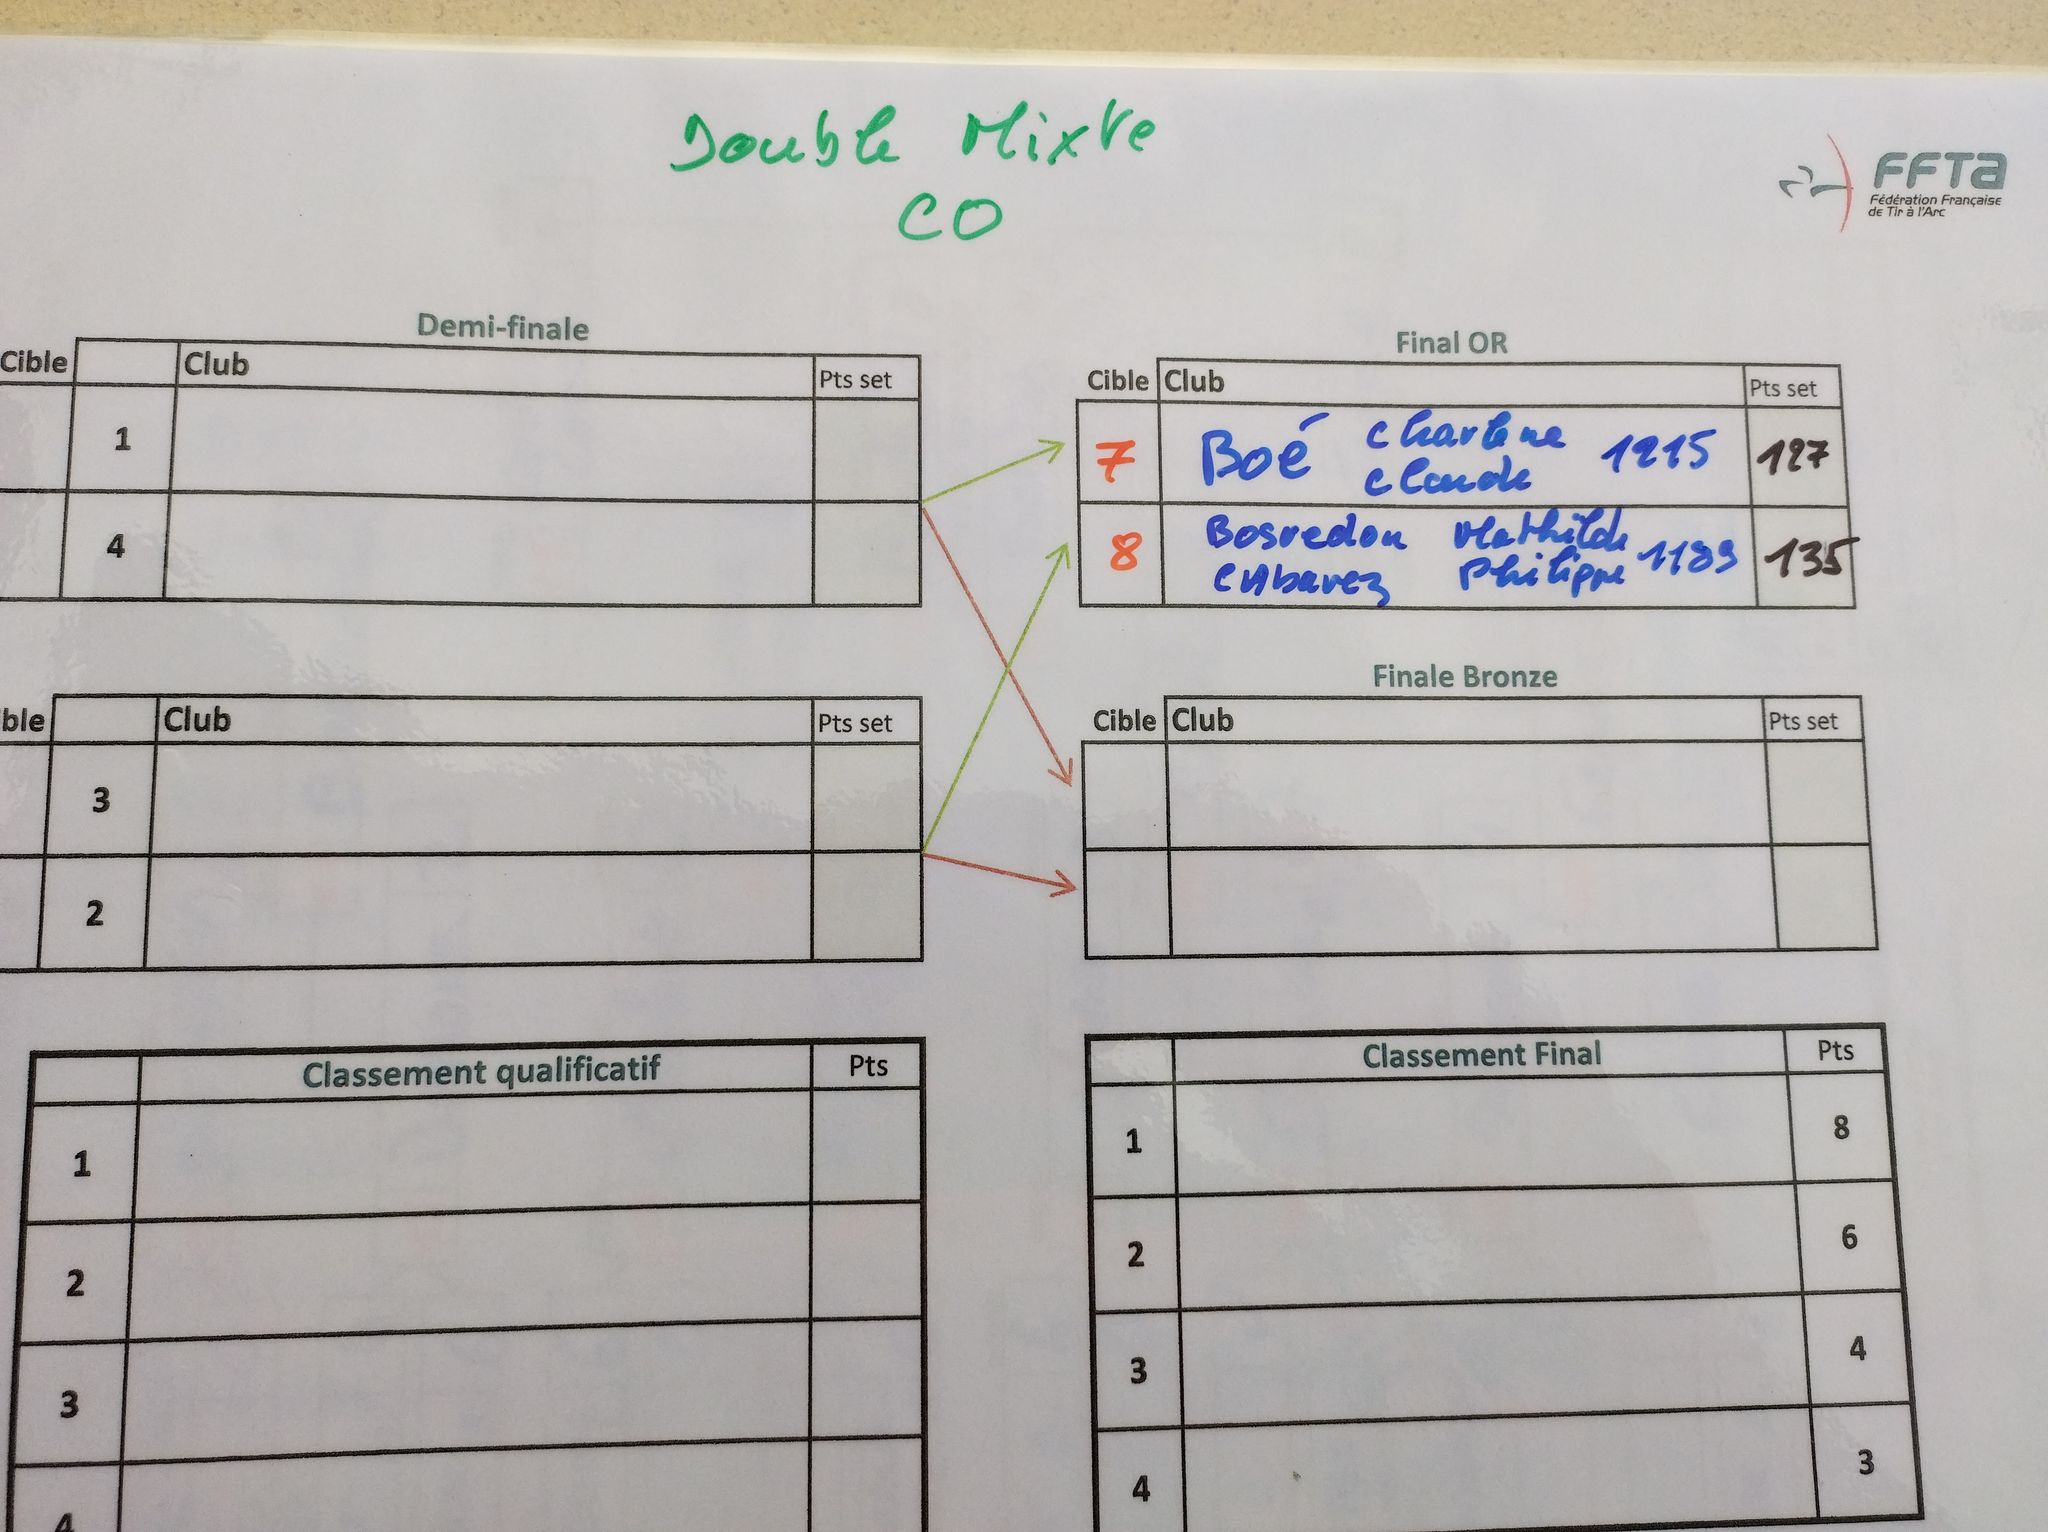 Double Mixte
CO
FFTA
Fédération Française
de Tir à l'Arc
Demi-finale
Cible Club Pts set
1
4
Final OR
Cible Club Pts set
7 Boé Charlene 1215 127
Claude
8 Bosredon Mathilde 1189 135
Philippe
ble Club Pts set
3
2
Finale Bronze
Cible Club Pts set
Classement qualificatif Pts
1
2
3
4
Classement Final Pts
1 8
2 6
3 4
4 3